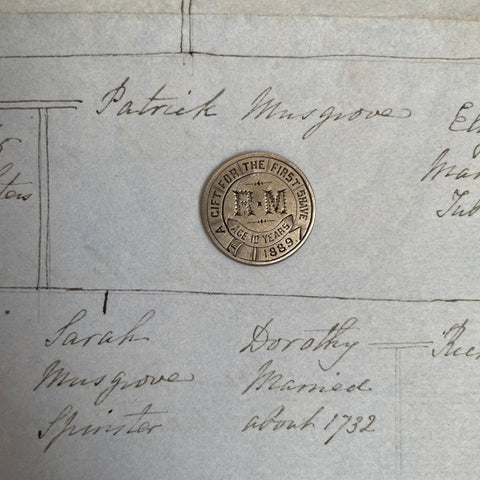 Patrick Musgrove
A GIFT FOR THE FIRST SHAVE
AGE 10 YEARS
1889
Sarah
Musgrove
Spinster
Dorothy
Married
about 1732